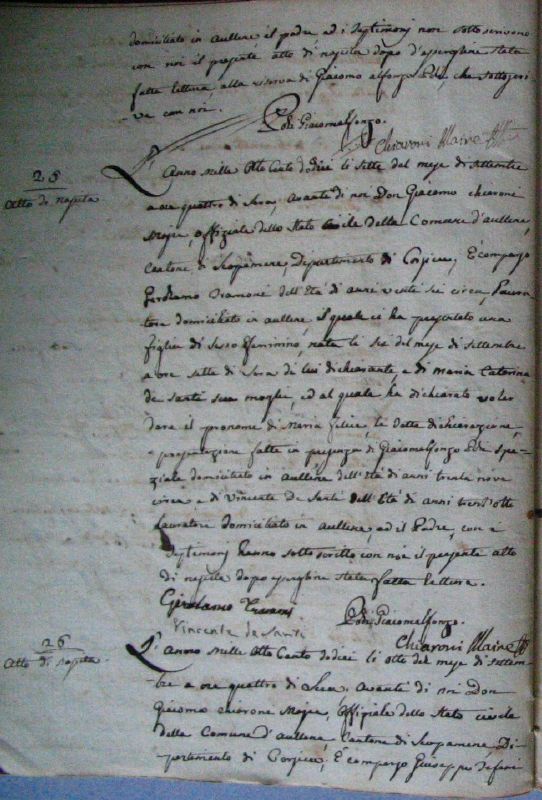 domiciliato in aullene il padre ed i Testimonj non sotto scrivono
con noi il presente atto di nascita dopo d'essergliene stata
fatta lettura alla riserva di Giacomo alfonzo Poli, che sottoscri-
ve con noi.
Poli Giacomalfonzo.
Chiaroni Maire
25
Atto di nascita
L'Anno mille Otto Cento dodici li sette del mese di Settembre
a ore quattro di Sera, avante di noi Don Giacomo chiaroni
Maire, Offiziale dello Stato Civile della Comune d'aullene,
Cantone di Scopamene, Dipartimento di Corsica, È comparso
Girolamo Tramoni dell'Età di anni venti sei circa, Lavora
tore domiciliato in aullene, il quale ci ha presentato una
figlia di Sesso feminino, nata li sei del mese di Settembre
a ore sette di Sera di lui dichiarante e di maria Caterina
de santi sua moglie, ed al quale ha dichiarato voler
dare il pronome di Maria felice, le dette dichiarazione,
e presentazione fatte in presenza di Giacomalfonzo Poli Spe-
ziale domiciliato in aullene dell'Età di anni trenta nove
circa e di Vincente De Santi dell'Età di anni trent'otto
Lavoratore domiciliato in aullene, ed il Padre, con e
Testimonj hanno sotto scritto con noi il presente atto
di nascita dopo essergliene stata fatta lettura.
Girolamo Tramoni
Poli Giacomalfonzo.
Vincente de Santi
Chiaroni Maire
26
Atto di nascita
L'Anno mille Otto Cento dodici li otto del mese di settem-
bre a ore quattro di Sera. Avante di noi Don
Giacomo chiaroni Maire, Offiziale dello Stato civile
della Comune d'aullene, Cantone di Scopamene Di-
partimento di Corsica, È comparso Giuseppe de santi